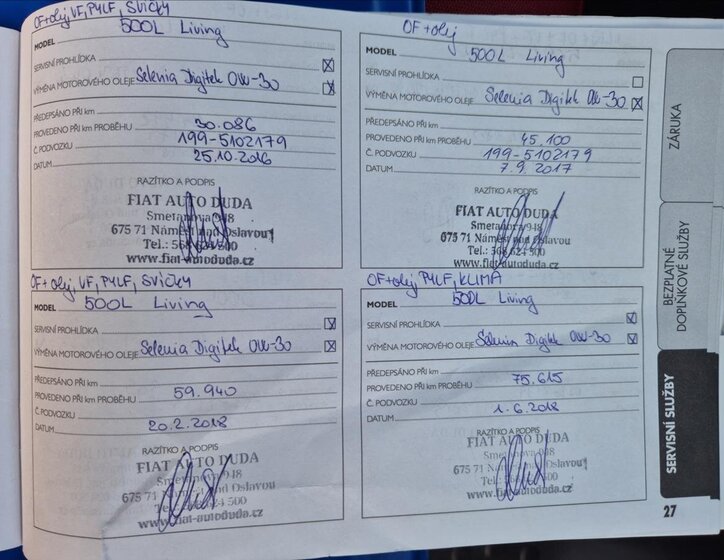 OF+olej, VF, PYLF, SVÍČKY
MODEL 500L Living
SERVISNÍ PROHLÍDKA
VÝMĚNA MOTOROVÉHO OLEJE Selenia Digitek 0W-30
PŘEDEPSÁNO PŘI km
PROVEDENO PŘI km PROBĚHU 30.086
Č. PODVOZKU 199-5102179
DATUM 25.10.2016
RAZÍTKO A PODPIS
FIAT AUTO DUDA
Smetanova 948
675 71 Náměšť nad Oslavou
Tel.: 568 624 500
www.fiat-autoduda.cz
OF+olej
MODEL 500L Living
SERVISNÍ PROHLÍDKA
VÝMĚNA MOTOROVÉHO OLEJE Selenia Digitek 0W-30
PŘEDEPSÁNO PŘI km
PROVEDENO PŘI km PROBĚHU 45.100
Č. PODVOZKU 199-5102179
DATUM 7.9.2017
RAZÍTKO A PODPIS
FIAT AUTO DUDA
Smetanova 948
675 71 Náměšť nad Oslavou
Tel.: 568 624 500
www.fiat-autoduda.cz
OF+olej, VF, PYLF, SVÍČKY
MODEL 500L Living
SERVISNÍ PROHLÍDKA
VÝMĚNA MOTOROVÉHO OLEJE Selenia Digitek 0W-30
PŘEDEPSÁNO PŘI km
PROVEDENO PŘI km PROBĚHU 59.940
Č. PODVOZKU
DATUM 20.2.2018
RAZÍTKO A PODPIS
FIAT AUTO DUDA
Smetanova 948
675 71 Náměšť nad Oslavou
Tel.: 568 624 500
www.fiat-autoduda.cz
OF+olej, PYLF, KLIMA
MODEL 500L Living
SERVISNÍ PROHLÍDKA
VÝMĚNA MOTOROVÉHO OLEJE Selenia Digitek 0W-30
PŘEDEPSÁNO PŘI km
PROVEDENO PŘI km PROBĚHU 75.615
Č. PODVOZKU
DATUM 1.6.2018
RAZÍTKO A PODPIS
FIAT AUTO DUDA
Smetanova 948
675 71 Náměšť nad Oslavou
Tel.: 568 624 500
www.fiat-autoduda.cz
ZÁRUKA
BEZPLATNÉ
DOPLŇKOVÉ SLUŽBY
SERVISNÍ SLUŽBY
27